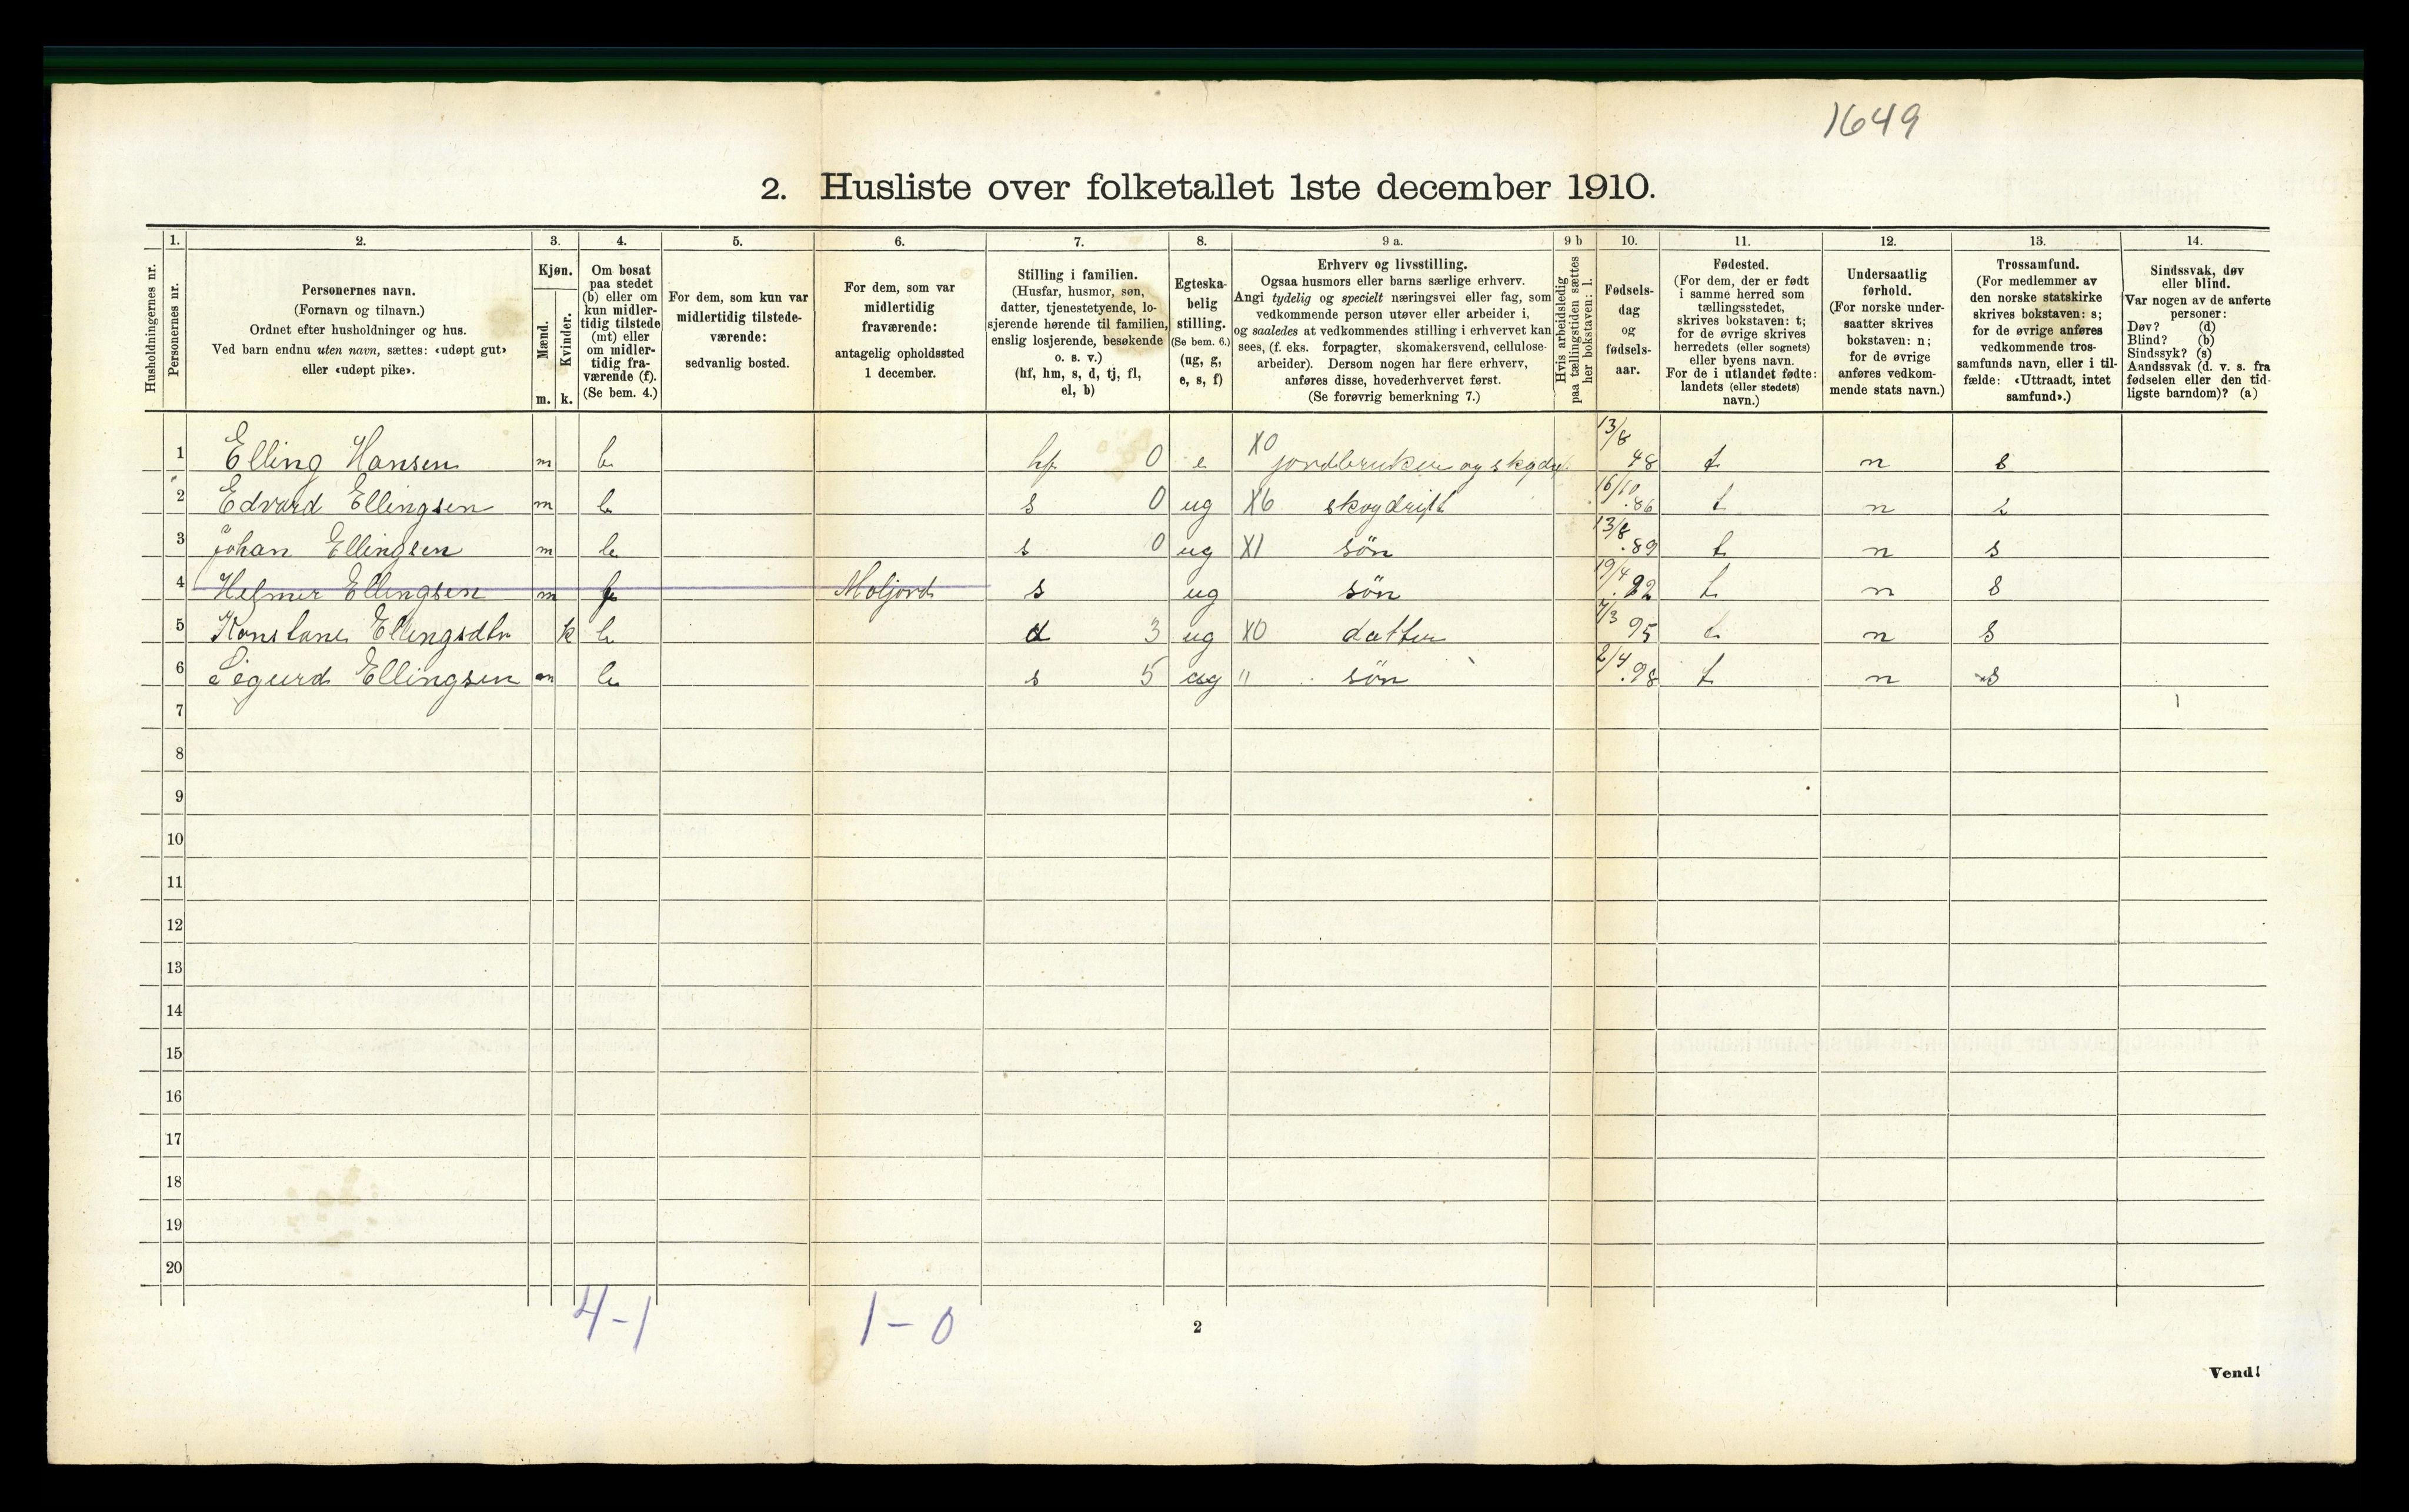 1649
2. Husliste over folketallet 1ste december 1910.
Husholdningernes nr.
1. Personernes nr.
2. Personernes navn.
(Fornavn og tilnavn.)
Ordnet efter husholdninger og hus.
Ved barn endnu uten navn, sættes: «udøpt gut»
eller «udøpt pike».
3. Kjøn.
Mænd. m.
Kvinder. k.
4. Om bosat
paa stedet
(b) eller om
kun midler-
tidig tilstede
(mt) eller
om midler-
tidig fra-
værende (f).
(Se bem. 4.)
5. For dem, som kun var
midlertidig tilstede-
værende:
sedvanlig bosted.
6. For dem, som var
midlertidig
fraværende:
antagelig opholdssted
1 december.
7. Stilling i familien.
(Husfar, husmor, søn,
datter, tjenestetyende, lo-
sjerende hørende til familien,
enslig losjerende, besøkende
o. s. v.)
(hf, hm, s, d, tj, fl,
el, b)
8. Egteska-
belig
stilling.
(Se bem. 6.)
(ug, g,
e, s, f)
9 a. Erhverv og livsstilling.
Ogsaa husmors eller barns særlige erhverv.
Angi tydelig og specielt næringsvei eller fag, som
vedkommende person utøver eller arbeider i,
og saaledes at vedkommendes stilling i erhvervet kan
sees, (f. eks. forpagter, skomakersvend, cellulose-
arbeider). Dersom nogen har flere erhverv,
anføres disse, hovederhvervet først.
(Se forøvrig bemerkning 7.)
9 b Hvis arbeidsledig
paa tællingstiden sættes
her bokstaven: l.
10. Fødsels-
dag
og
fødsels-
aar.
11. Fødested.
(For dem, der er født
i samme herred som
tællingsstedet,
skrives bokstaven: t;
for de øvrige skrives
herredets (eller sognets)
eller byens navn.
For de i utlandet fødte:
landets (eller stedets)
navn.)
12. Undersaatlig
forhold.
(For norske under-
saatter skrives
bokstaven: n;
for de øvrige
anføres vedkom-
mende stats navn.)
13. Trossamfund.
(For medlemmer av
den norske statskirke
skrives bokstaven: s;
for de øvrige anføres
vedkommende tros-
samfunds navn, eller i til-
fælde: «Uttraadt, intet
samfund».)
14. Sindssvak, døv
eller blind.
Var nogen av de anførte
personer:
Døv? (d)
Blind? (b)
Sindssyk? (s)
Aandssvak (d. v. s. fra
fødselen eller den tid-
ligste barndom)? (a)
1 Elling Hansen m b hf 0 e X0 jordbruker og skogdr. 13/8 48 t n s
2 Edvard Ellingsen m b s 0 ug X6 skogdrift 16/10 .86 t n s
3 Johan Ellingsen m b s 0 ug X1 søn 13/8 .89 t n s
4 Helmer Ellingsen m f Moljord s ug søn 19/4 .92 t n s
5 Konstane Ellingsdtr k b d 3 ug X0 datter 7/3 95 t n s
6 Sigurd Ellingsen m b s 5 ug " søn 2/4 .98 t n s
7
8
9
10
11
12
13
14
15
16
17
18
19
20
4-1 1-0
2
Vend!